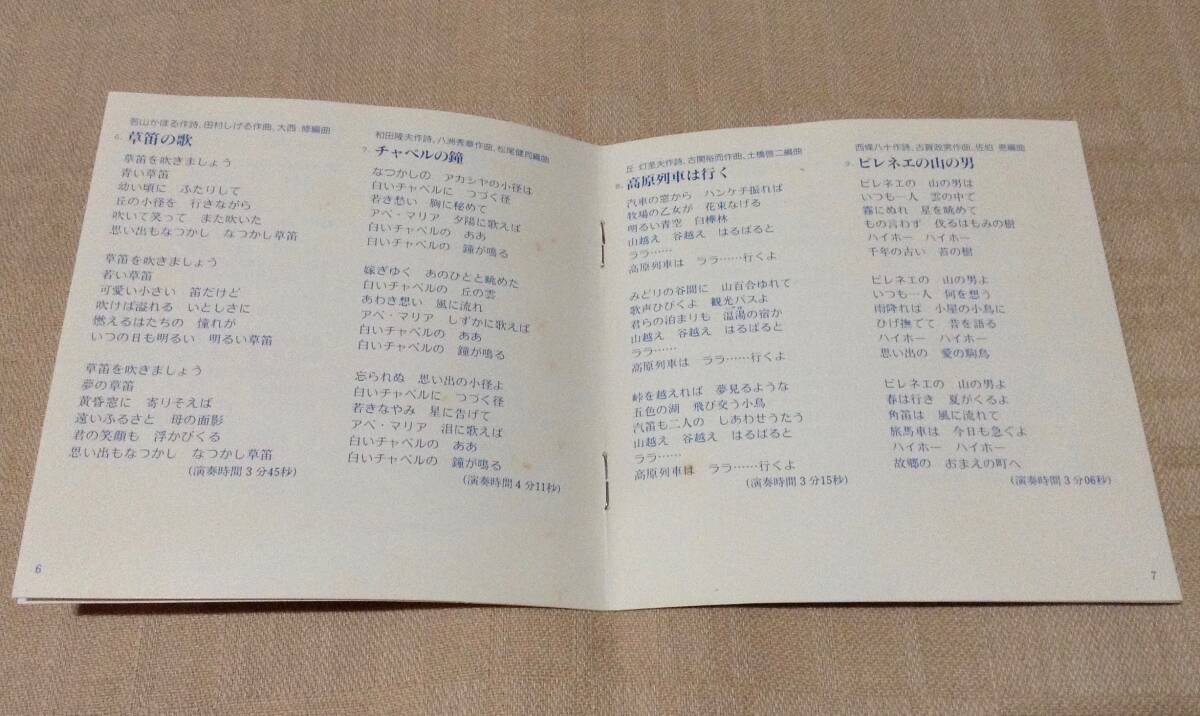 若山かほる作詩、田村しげる作曲、大西 修編曲
6. 草笛の歌
草笛を吹きましょう
青い草笛
幼い頃に ふたりして
丘の小径を 行きながら
吹いて笑って また吹いた
思い出もなつかし なつかし草笛
草笛を吹きましょう
若い草笛
可愛い小さい 笛だけど
吹けば溢れる いとしさに
燃えるはたちの 憧れが
いつの日も明るい 明るい草笛
草笛を吹きましょう
夢の草笛
黄昏窓に 寄りそえば
遠いふるさと 母の面影
君の笑顔も 浮かびくる
思い出もなつかし なつかし草笛
(演奏時間3分45秒)
6
和田隆夫作詩、八洲秀章作曲、松尾健司編曲
7. チャペルの鐘
なつかしの アカシヤの小径は
白いチャペルに つづく径
若き愁い 胸に秘めて
アベ・マリア 夕陽に歌えば
白いチャペルの ああ
白いチャペルの 鐘が鳴る
嫁ぎゆく あのひとと眺めた
白いチャペルの 丘の雲
あわき想い 風に流れ
アベ・マリア しずかに歌えば
白いチャペルの ああ
白いチャペルの 鐘が鳴る
忘られぬ 思い出の小径よ
白いチャペルに つづく径
若きなやみ 星に告げて
アベ・マリア 泪に歌えば
白いチャペルの ああ
白いチャペルの 鐘が鳴る
(演奏時間4分11秒)
丘 灯至夫作詩、古関裕而作曲、土橋啓二編曲
8. 高原列車は行く
汽車の窓から ハンケチ振れば
牧場の乙女が 花束なげる
明るい青空 白樺林
山越え 谷越え はるばると
ララ……
高原列車は ララ……行くよ
みどりの谷間に 山百合ゆれて
歌声ひびくよ 観光バスよ
君らの泊まりも 温湯の宿か
山越え 谷越え はるばると
ララ……
高原列車は ララ……行くよ
峠を越えれば 夢見るような
五色の湖 飛び交う小鳥
汽笛も二人の しあわせうたう
山越え 谷越え はるばると
ララ……
高原列車は ララ……行くよ
(演奏時間3分15秒)
西條八十作詩、古賀政男作曲、佐伯 亮編曲
9. ピレネエの山の男
ピレネエの 山の男は
いつも一人 雲の中で
霧にぬれ 星を眺めて
もの言わず 伐るはもみの樹
ハイホー ハイホー
千年の古い 苔の樹
ピレネエの 山の男よ
いつも一人 何を想う
雨降れば 小屋の小鳥に
ひげ撫でて 昔を語る
ハイホー ハイホー
思い出の 愛の駒鳥
ピレネエの 山の男よ
春は行き 夏がくるよ
角笛は 風に流れて
旅馬車は 今日も急ぐよ
ハイホー ハイホー
故郷の おまえの町へ
(演奏時間3分06秒)
7